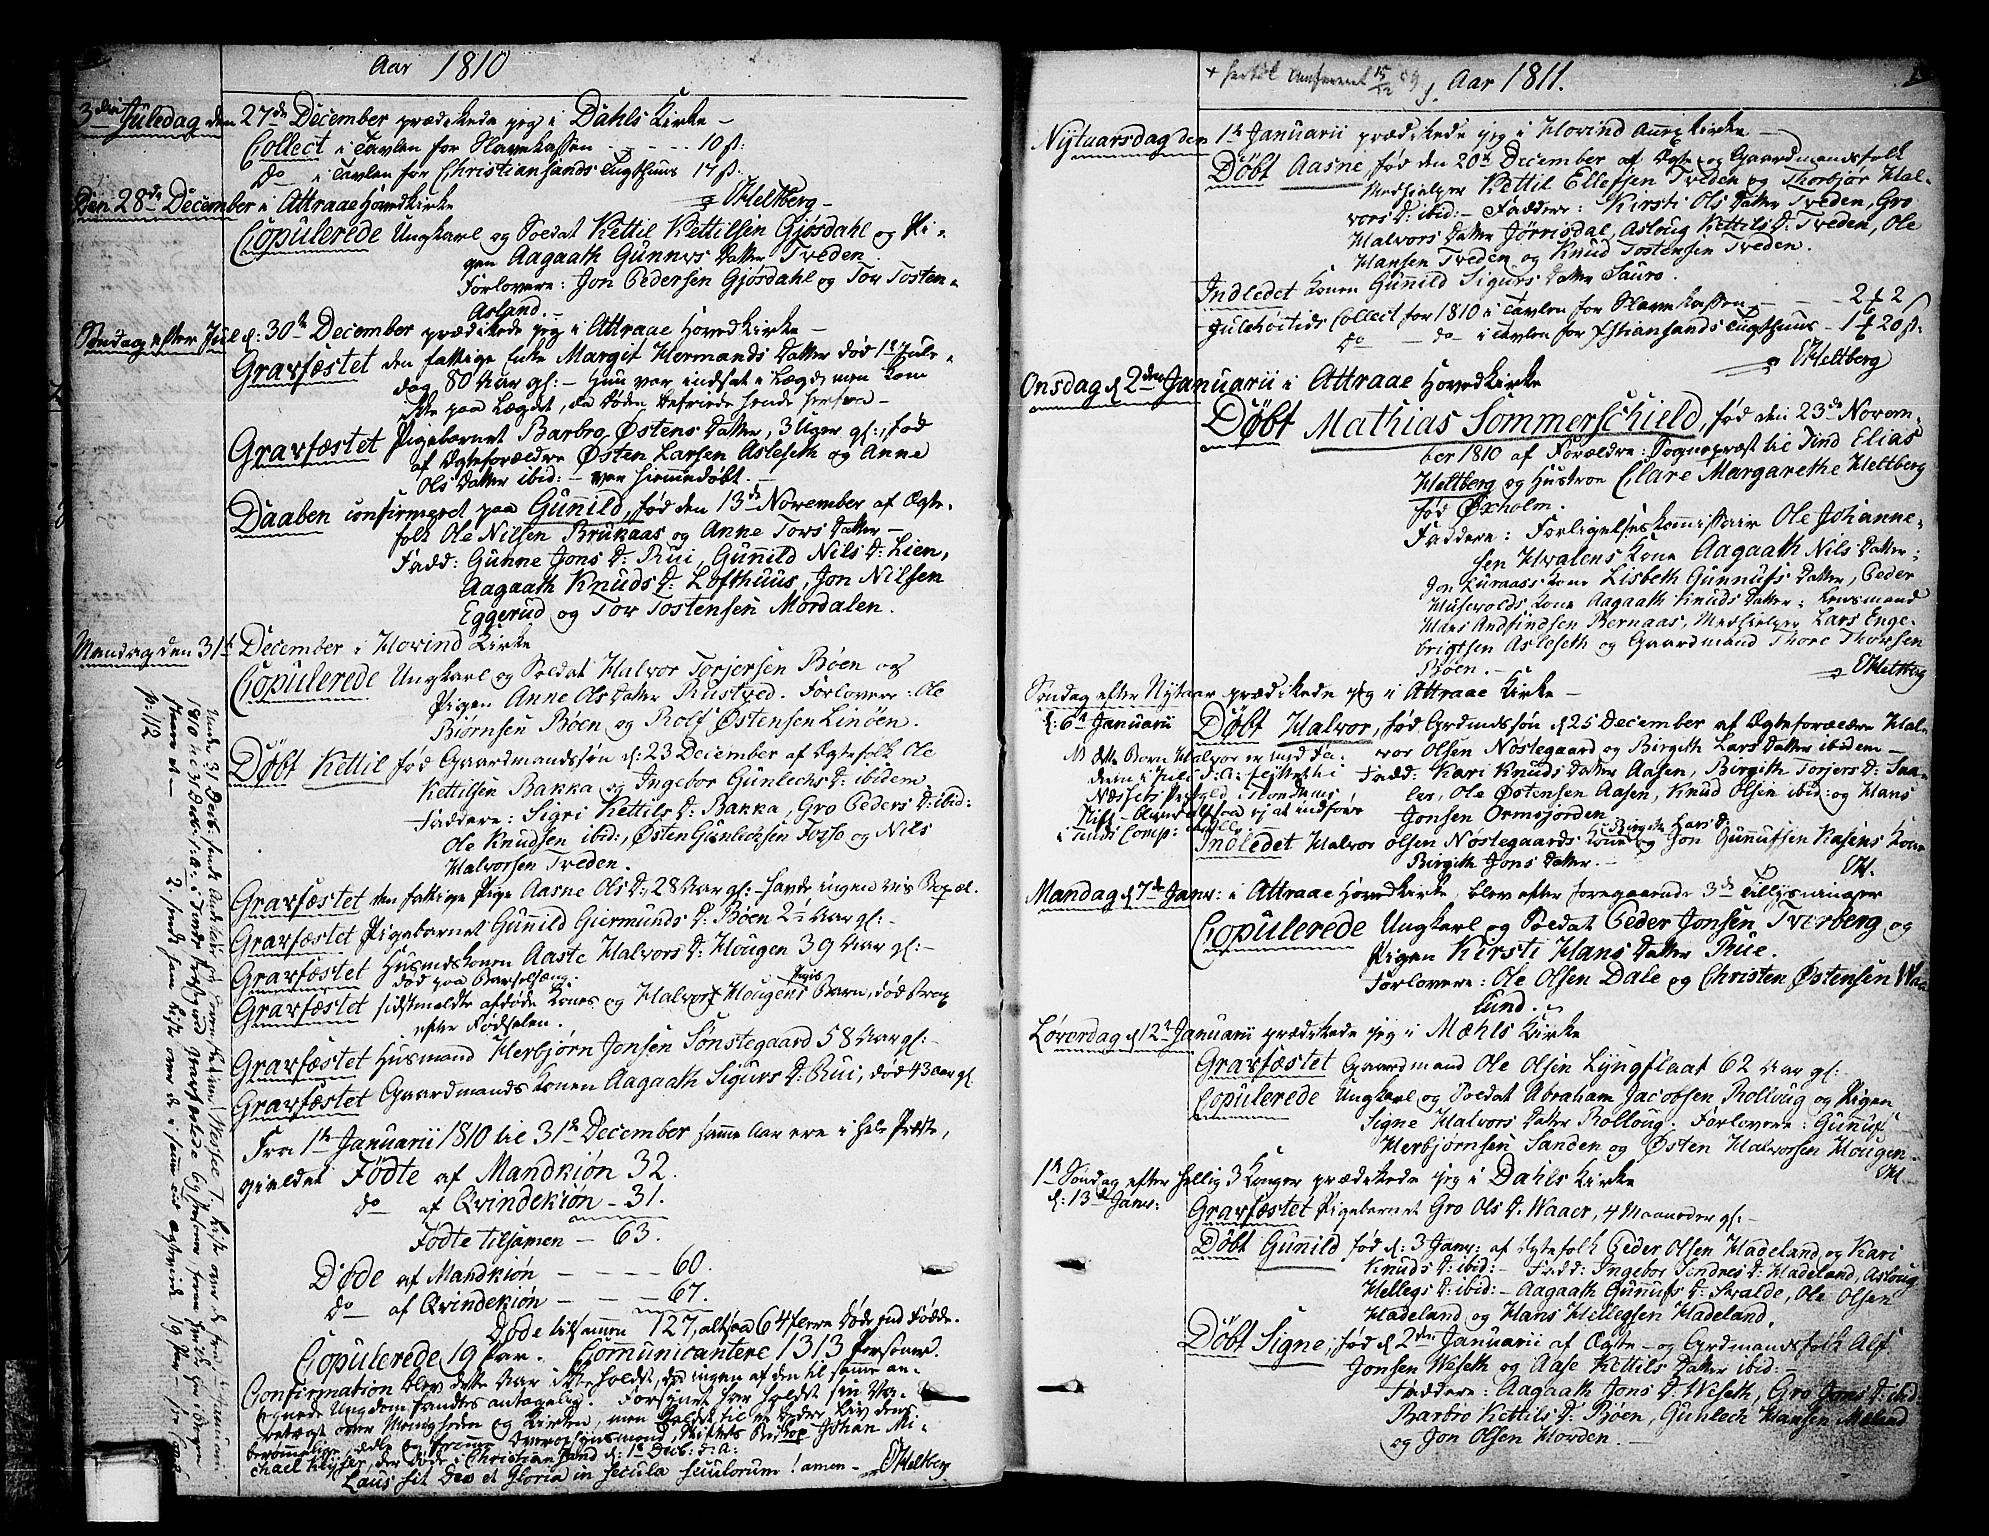 Aar 1810
3die Juledag den 27de December prædikede jeg i Dahls Kirke –
Collect i Tavlen for Slavekassen - - - - 10 ß:
do i Tavlen for Christiansands Tugthuus 17 ß.
EHeltberg –
Den 28de December i Attraae Hovedkirke
Copulerede Ungkarl og Soldat Kettil Kettilsen Gjøsdahl og Pi-
gen Aagaath Gunners Datter Tveden
Forlovere: Jon Pedersen Gjøsdahl og Tor Tosten-
Asland. –
Søndag efter Juul d: 30te December prædikede jeg i Attraae Hovedkirke –
Gravfæstet den fattige Enke Margit Hermands Datter død 1te Jule-
dag, 80 Aar gl: – Hun var indsat i Lægd, men kom
ikke paa Lægdet, da Døden befriede hende herfra –
Gravfæstet Pigebarnet Barbro Østens Datter, 3 Uger gl:, fød
af Ægteforældre Østen Larsen Asleseth og Anne
Ols Datter ibid: – var hiemmedøbt. –
Daaben confirmeret paa Gunnild, fød den 13de November af Ægte-
folk Ole Nilsen Brukaas og Anne Tors Datter –
Fadd: Gunne Jons D: Rui, Gunnild Nils D: Lien,
Aagaath Knuds D: Lofthuus, Jon Nilsen
Eggerud og Tor Tostensen Mordalen.
Mandag den 31te December i Hovind Kirke
Copulerede Ungkarl og Soldat Halvor Torjersen Bøen og
Pigen Anne Ols Datter Rustved. Forlovere: Ole
Biørnsen Bøen og Rolf Østensen Linøen.
Døbt Kettil fød Gaardmandssøn d: 23 December af Ægtefolk Ole
Kettilsen Bakka og Ingebor Gunlechs D: ibidem
Faddere: Sigri Kettils D: Bakka, Gro Peders D: ibid:
Ole Knudsen ibid:, Østen Gunlechsen Fosso og Nils
Halvorsen Tveden.
Gravfæstet den fattige Pige Aasne Ols D: 28 Aar gl: – havde ingen vis Bopæl.
Gravfæstet Pigebarnet Gunnild Giermunds D: Bøen 2½ Aar gl: –
Gravfæstet Husmdskonen Aaste Halvors D: Hougen 39 Aar gl: –
død paa Barselseng.
Gravfæstet sidstmeldte afdøde Kones og Halvor Hougens Pige Barn, død strax
efter Fødselen.
Gravfæstet Husmand Herbjørn Jonsen Sønstegaard 58 Aar gl: –
Gravfæstet Gaardmands Konen Aagaath Sigurs D: Rui, død 43 aar gl.
Fra 1te Januarii 1810 til 31te December samme Aar ere i hele Præste-
gieldet Fødte af Mandkiøn 32.
do af Qvindekiøn – 31.
Fødte tilsamen – 63.
Døde af Mandkiøn - - - 60.
do – af Qvindekiøn - - - 67.
Døde tilsammen 127, altsaa 64 flere Døde end Fødde.
Copulerede 19 Par. Communicantere 1313 Personer.
Confirmation blev dette Aar ikke holdt, da ingen af den til samme an-
tegnede Ungdom fandtes antagelig. Forsynet har holdt sin Va-
retægt over Menigheden og Kirken, men kaldet til et bedre Liv dens
berømmelige, ædle og fromme Overopsynsmand, Stiftets Biskop Johan Mi-
chael Keyser, der døde i Christiansand d: 1te Decb: d: A:
Laus sit Deo et Gloria in secula seculorum! amen – EHeltberg
Under 31 Decb. sendt
1810 til 31 Decb: s: A: i Tinds Præstegield Gravfæstede
2 sendt ham Liste over de i samme Aar 19 Par –
p: 112
+ 15/12 09
Aar 1811.
Nytaarsdag den 1te Januarii prædikede jeg i Hovind Annex Kirke –
Døbt Aasne, fød den 20de December af Ægte- og Gaardmandsfolk
Medhielper Kettil Ellefsen Tveden og Thorbjør Hal-
vors D: ibid: – Faddere: Kirsti Ols Datter Tveden, Gro
Halvors Datter Jørrisdal, Asloug Kettils D: Tveden, Ole
Hansen Tveden og Knud Tostensen Tveden.
Indledet Konen Gunild Sigurs Datter Sauro.
Julehøitids Collect for 1810 i Tavlen for Slavekassen - - - 2 f 2 ß
do – do – i Tavlen for Xstiansands Tugthuus – 1 f 20 ß.
EHeltberg
Onsdag d 2den Januarii i Attraae Hovedkirke
Døbt Mathias Sommerschield, fød den 23de Novem-
ber 1810 af Forældre: Sognepræst til Tind Elias
Heltberg og Hustroe Clare Margarethe Heltberg
fød Øxholm.
Faddere: Forligelseskommissair Ole Johanne-
sen Hvalens Kone Aagaath Nils Datter;
Jon Luraass Kone Lisbeth Gunnufs Datter, Peder
Husevolds Kone Aagaath Knuds Datter; Lensmand
Hans Andfindsen Bernaas, Medhielper Lars Enge-
brigtsen Asleseth og Gaardmand Thore Thorsen
Bøen. –
EHeltberg
Søndag efter Nytaar prædikede jeg i Attraae Kirke –
d: 6te Januarii
Døbt Halvor, fød Grdmdssøn d 25 December af Ægteforældre Hal-
vor Olsen Nøstegaard og Birgith Lars Datter ibidem –
Fadd: Kari Knuds Datter Aasen, Birgith Torjers D: Saa-
ler, Ole Østensen Aasen, Knud Olsen ibid: og Hans
Jonsen Ormsjorden
NB dette Barn Halvor er med Fa-
deren i Juli d: A: flyttet til
Næssets Præstgld i Trondhiems
Stift – bliver altsaa ej at indføre
i Tinds Comp:
Indledet Halvor Olsen Nøstegaards Kone Birgith Lars D: og Jon Gunnufsen Kasins Kone
Birgith Jons Datter. –
EH.
Mandag d 7de Janr: i Attraae Hovedkirke, blev efter foregaaende 3de Tillysninger
Copulerede Ungkarl og Soldat Peder Jonsen Tverberg og
Pigen Kirsti Hans Datter Rue.
Forlovere: Ole Olsen Dale og Christen Østensen Waa-
lund. –
Løverdag d 12te Januarii prædikede jeg i Mæhls Kirke
Gravfæstet Gaardmand Ole Olsen Lyngflaat 62 Aar gl: –
Copulerede Ungkarl og Soldat Abraham Jacobsen Rolloug og Pigen
Signe Halvors Datter Rolloug. Forlovere: Gunuf
Herbjørnsen Sanden og Østen Halvorsen Hougen –
EH
1te Søndag efter hellig 3 Konger prædikede jeg i Dahls Kirke
d: 13de Janr:
Gravfæstet Pigebarnet Gro Ols D: Waaer, 4 Maaneder gl: –
Døbt Gunnild fød d: 3 Janr: af Ægtefolk Peder Olsen Hadeland og Kari
Knuds D: ibid: – Fadd: Ingebor Sondres D: Hadeland, Asloug
Hellegs D: ibid: – Aagaath Gunufs D: Svalde, Ole Olsen
Hadeland og Hans Hellegsen Hadeland.
Døbt Signe, fød d 2den Januarii af Ægte- og Grdmandsfolk Alf
Jonsen Weseth og Aase Kettils Datter ibid: –
Faddere: Aagaath Jons D: Weseth, Gro Jons D: ibid:
Barbro Kettils D: Bøen, Gunlech Hansen Mæland
og Jon Olsen Horden. –